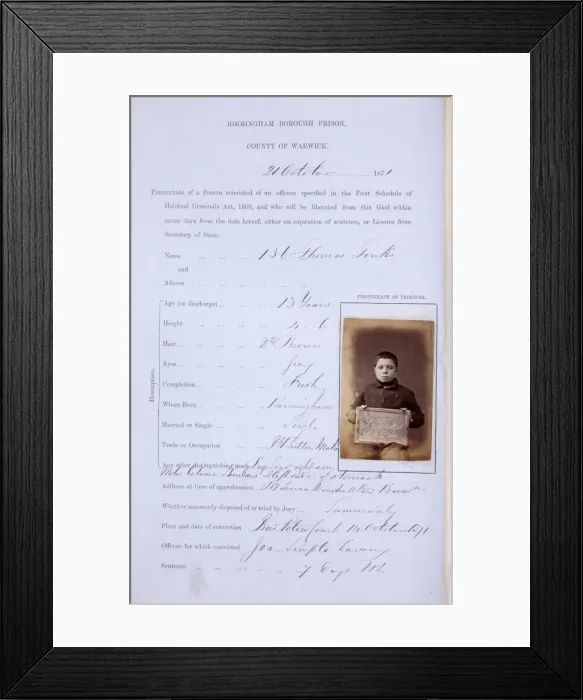 BIRMINGHAM BOROUGH PRISON,
COUNTY OF WARWICK.
21 October 1871
PHOTOGRAPH of a Person convicted of an offence specified in the First Schedule of
Habitual Criminals Act, 1869, and who will be liberated from this Gaol within
seven days from the date hereof, either on expiration of sentence, or Licence from
Secretary of State.
Name .. .. .. 136 Thomas Fonks
and
Aliases .. .. .. .. .. ..
PHOTOGRAPH OF PRISONER.
Description.
Age (on discharge) .. .. .. 13 Years
Height .. .. .. .. .. 4 - 6
Hair .. .. .. .. .. Dk Brown
Eyes .. .. .. .. .. Grey
Complexion .. .. .. .. Fresh
Where Born .. .. .. Birmingham
Married or Single .. .. .. Single
Trade or Occupation .. ..
Any other distinguishing mark right arm
Mole stomach
Address at time of apprehension
Whether summarily disposed of or tried by Jury ... Summarily
Place and date of conviction Police Court 14 October 71
Offence for which convicted Simple Larceny
Sentence .. .. .. .. 7 Days